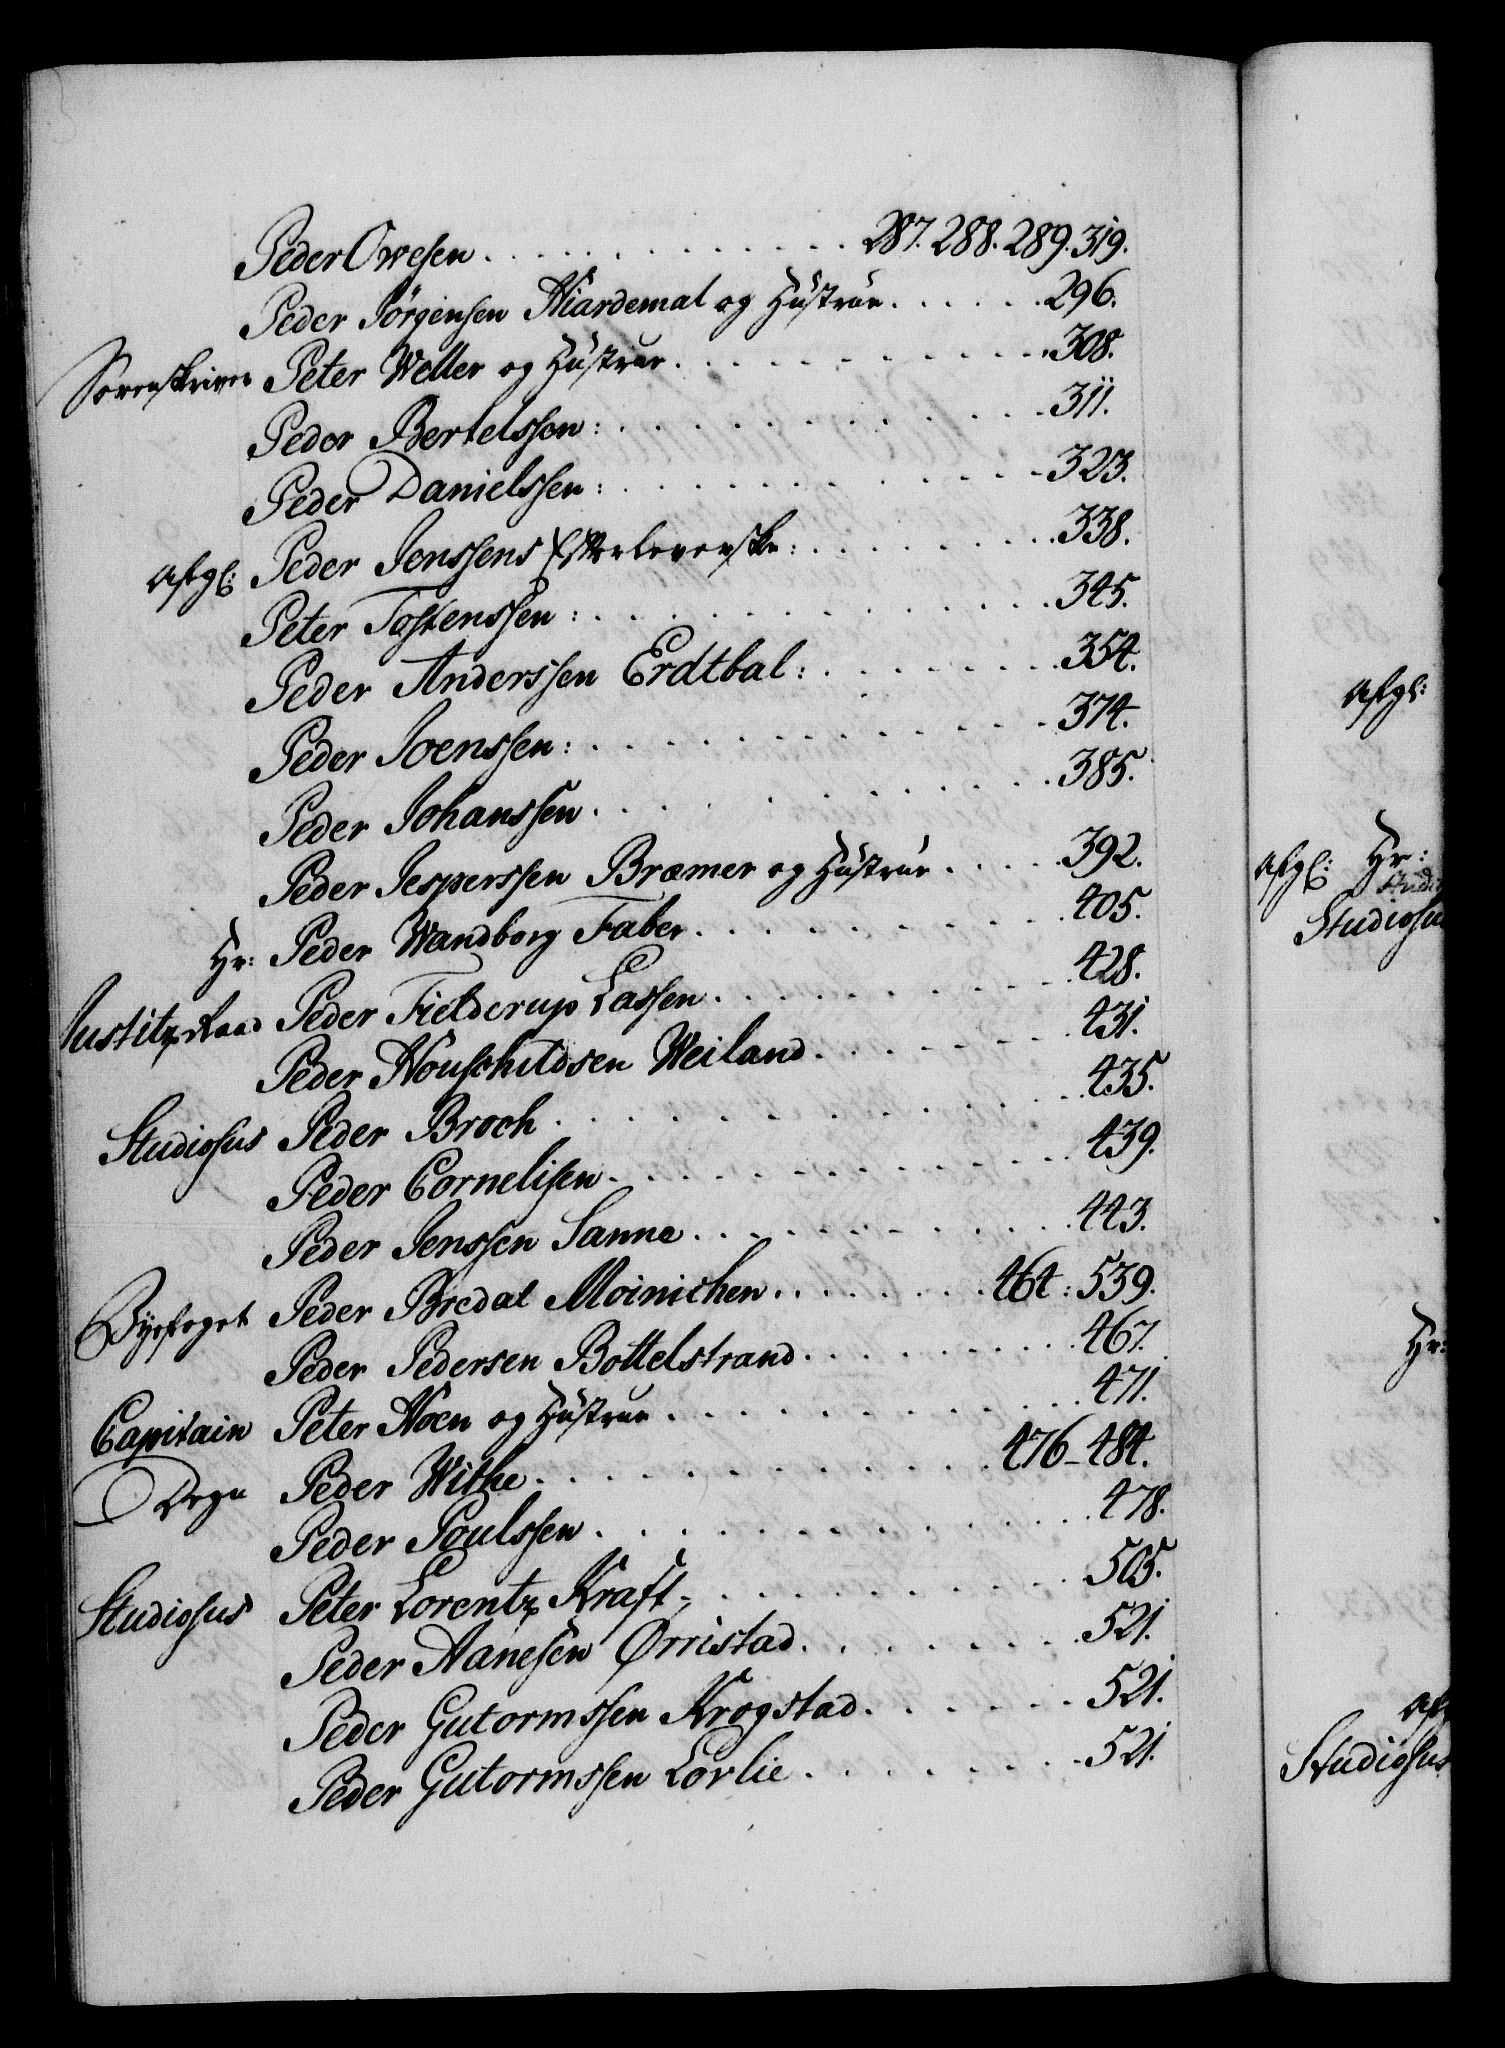 Peder Owesen . . . . . . . . . . . 287. 288. 289. 319.
Peder Jörgensen Hiardemal og Hustrue . . . . . . 296.
Sorenskriver Peter Weller og Hustrue . . . . . . . . . . . 308.
Peder Bertelssen: . . . . . . . . . . . 311.
Peder Danielssen: . . . . . . . . . . . 323.
Afgl: Peder Jenssens Efterleverske: . . . . . . . . . 338.
Peter Tostenssen: . . . . . . . . . . . . 345.
Peder Anderssen Erdtbal: . . . . . . . . 354.
Peder Joenssen: . . . . . . . . . . . . 374.
Peder Johanssen . . . . . . . . . . . . 385.
Peder Jesperssen Bræmer og Hustrue . . . . 392.
Hr: Peder Wandborg Faber . . . . . . . . . . 405.
Justitz Raad Peder Fielderup Lassen . . . . . . . . . . 428.
Peder Houschildsen Weiland . . . . . . . 431.
Studiosus Peder Broch . . . . . . . . . . . . . 435.
Peder Cornelisen . . . . . . . . . . . . 439.
Peder Jenssen Sanne . . . . . . . . . . 443.
Byefoget Peder Bredal Moinichen . . . . . . . . 464: 539.
Peder Pedersen Bottelstrand . . . . . . . . . 467.
Capitain Peter Hoen og Hustrue . . . . . . . . . . . 471.
Degn Peder Withe . . . . . . . . . . . . 476 - 484.
Peder Poulssen . . . . . . . . . . . . . 478.
Studiosus Peter Lorentz Kraft . . . . . . . . . . . 505.
Peder Aanesen Ørristad . . . . . . . . 521.
Peder Gutormssen Krogstad . . . . . . 521.
Peder Gutormssen Lorlie . . . . . . . 521.
Afgl:
Afgl: Hr:
Studiosus
Hr:
Studiosus